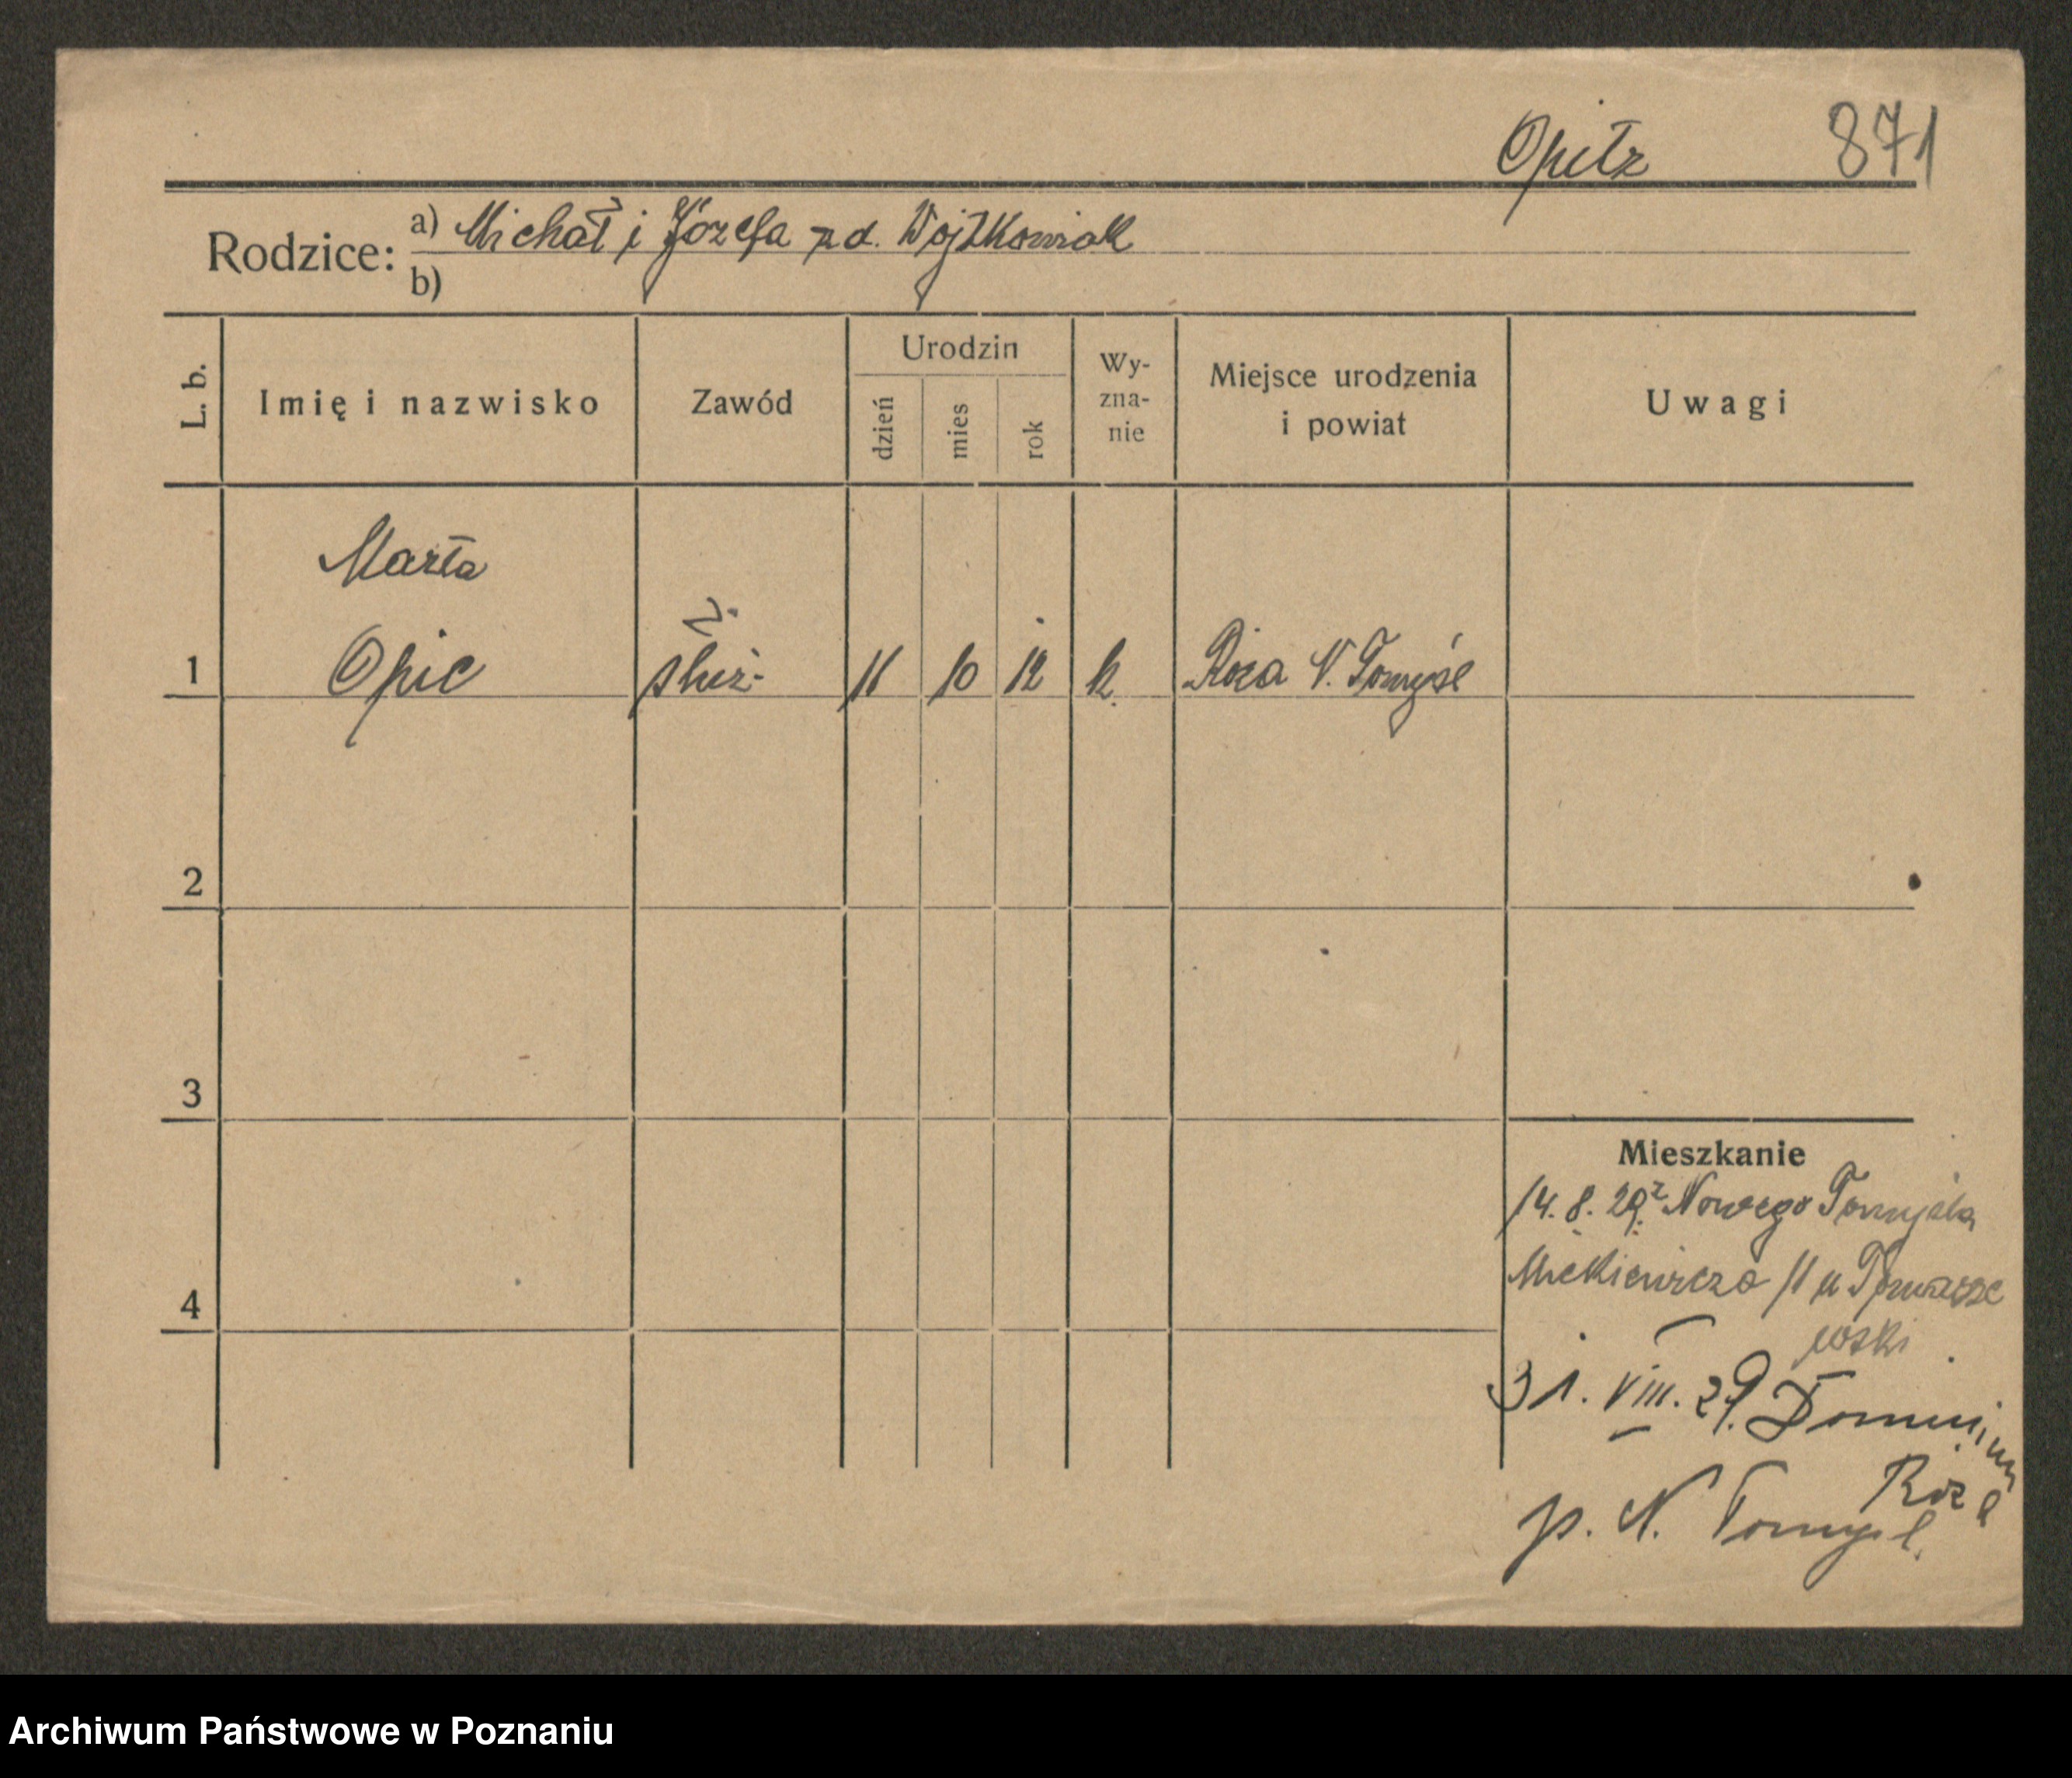 Opitz 871
Rodzice: a) Michał i Józefa zd. Wojtkowiak
b)
L. b. Imię i nazwisko Zawód Urodzin dzień mies rok Wy-zna-nie Miejsce urodzenia i powiat Uwagi
Marta
ż.
1 Opic służ. 11 10 12 k. Róża N. Tomyśl
2
3
Mieszkanie
14.8.29 z Nowego Tomyśla
4 Mickiewicza 11 u Tomasze
wski
31. VIII. 29. Dominium
Róża
p. N. Tomyśl.
Archiwum Państwowe w Poznaniu